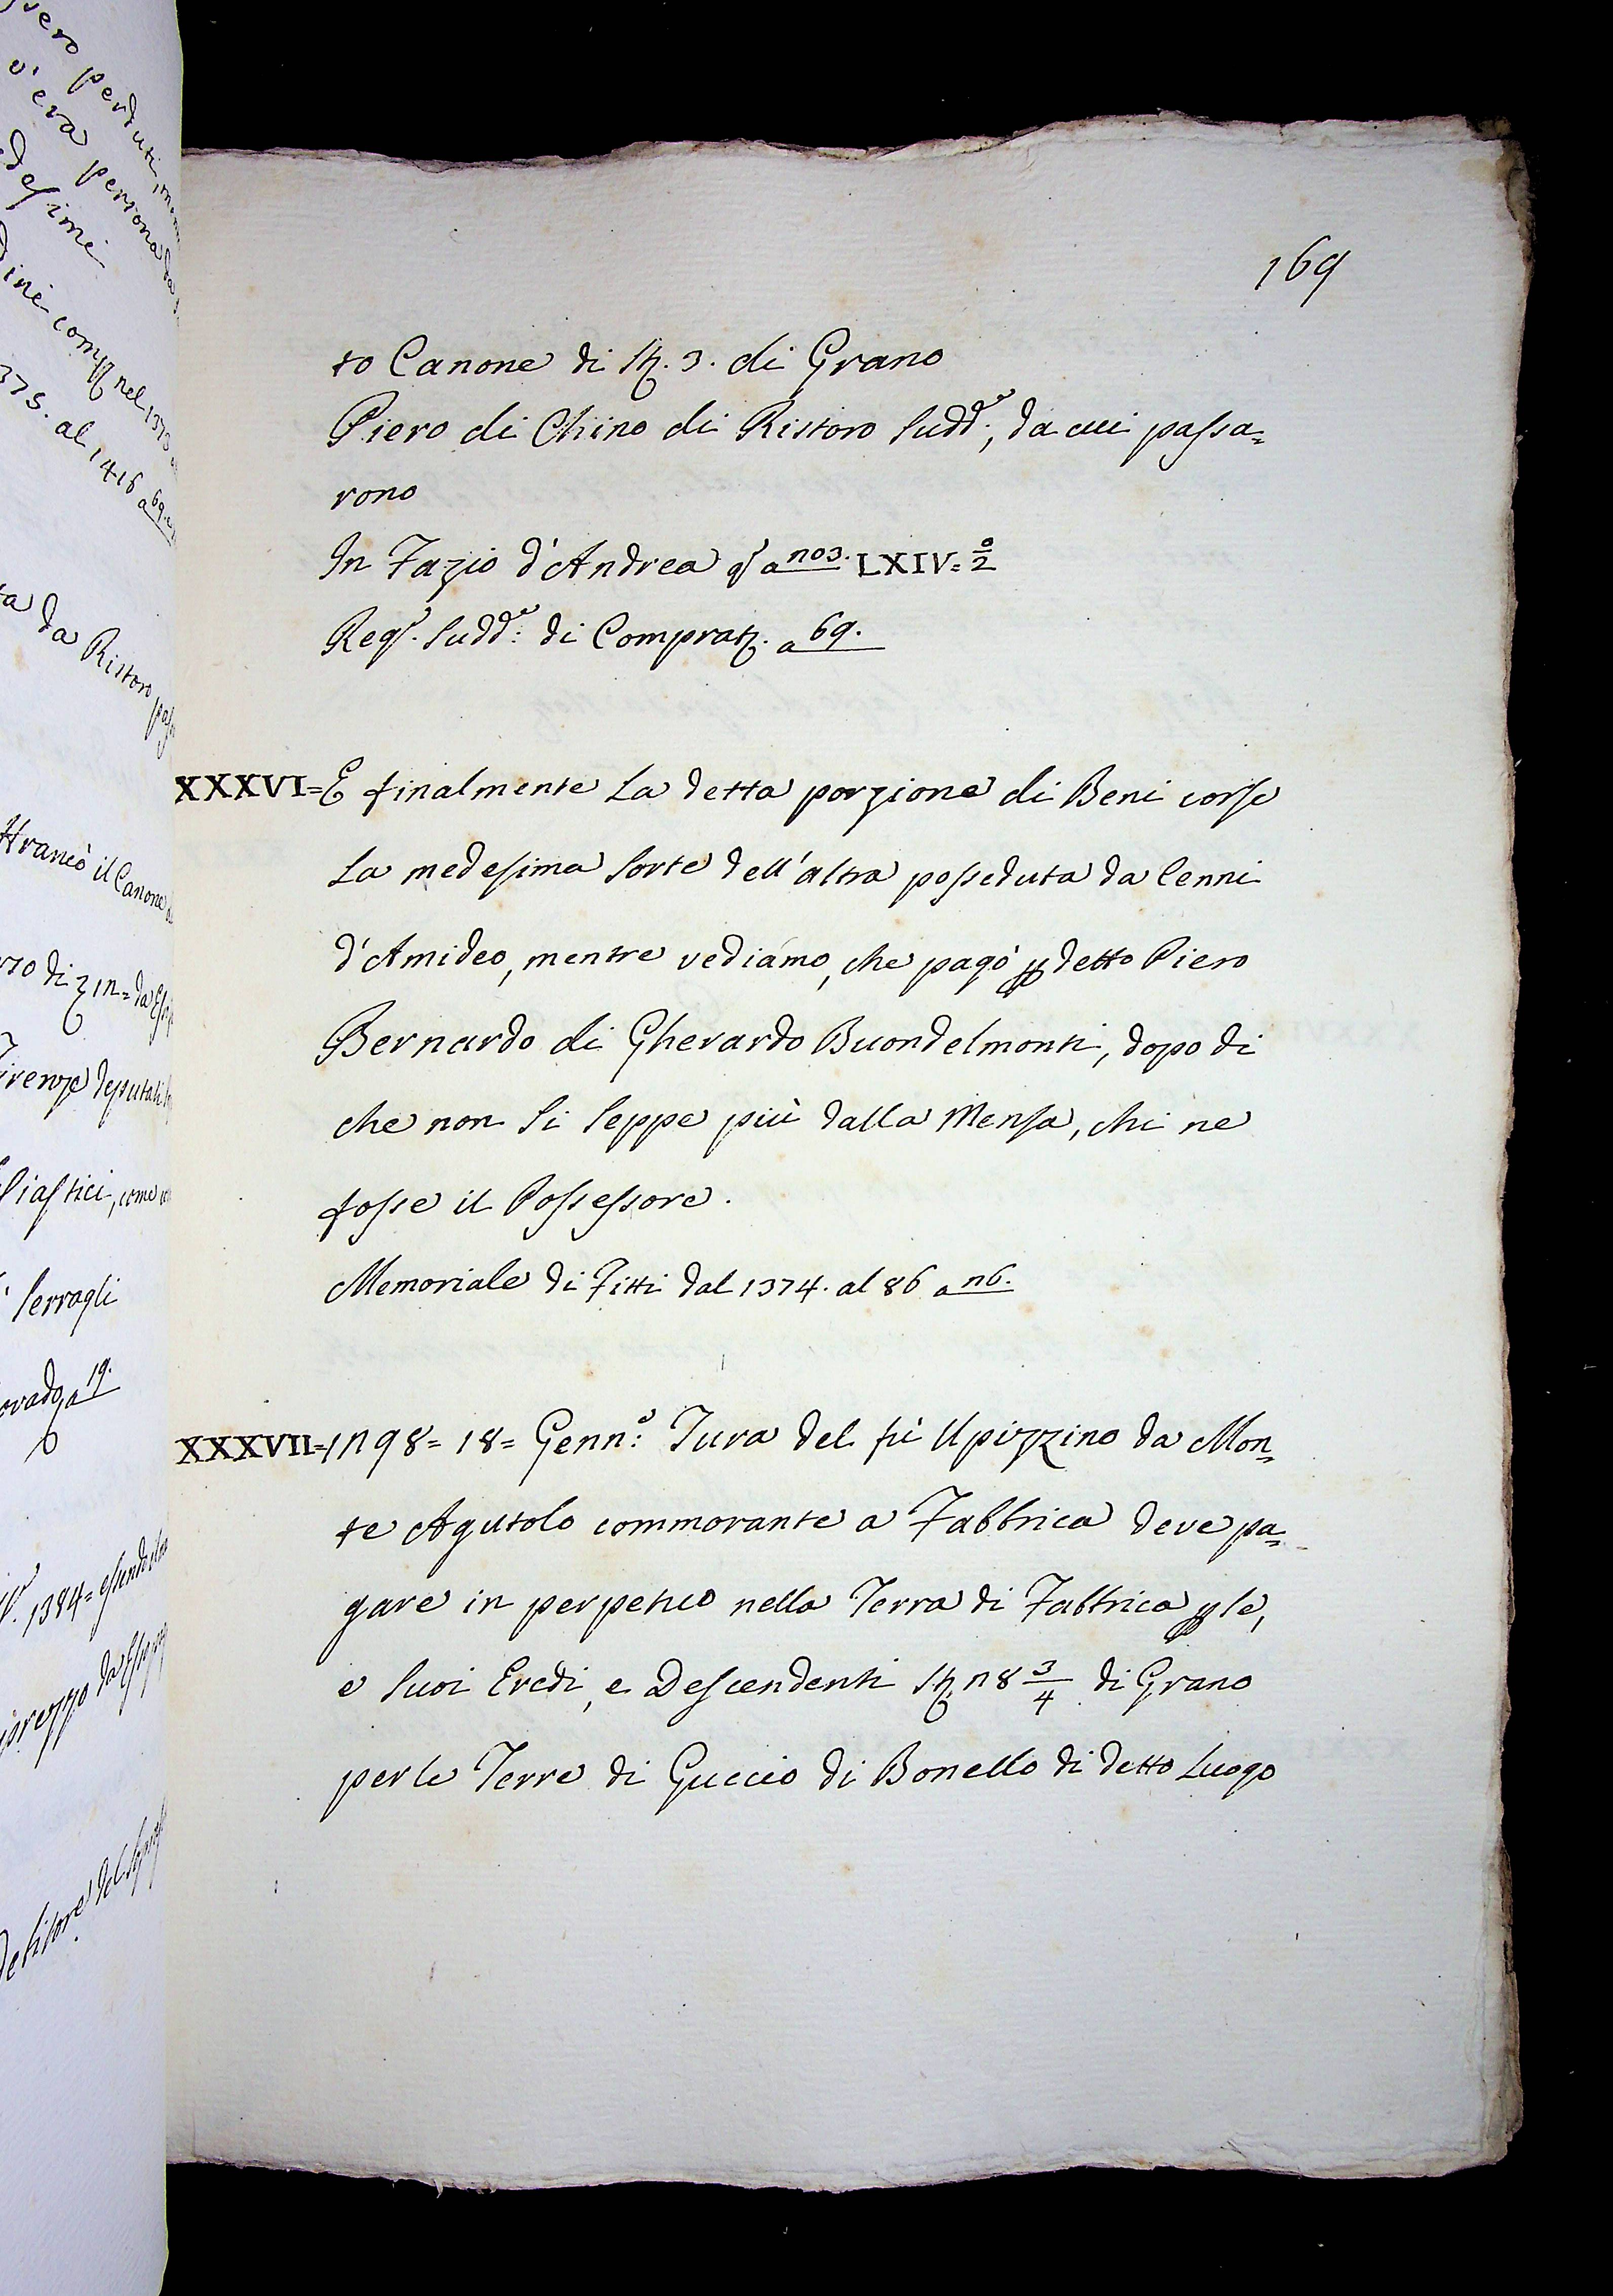 169
to Canone di St. 3. di Grano
Piero di Chino di Ristoro Sudd.º, da cui passa=
rono
In Fazio d'Andrea qº a no3. LXIV=º2
Regº. Sudd.º: di Comprat. a 69.
XXXVI= E finalmente la detta porzione di Beni corse
la medesima sorte dell'altra posseduta da Cenni
d'Amideo, mentre vediamo, che pagò p detto Piero
Bernardo di Gherardo Buondelmonti, dopo di
che non si seppe più dalla Mensa, chi ne
fosse il Possessore.
Memoriale di Fitti dal 1374. al 86 a n6.
XXXVII= 1n98= 18= Genn.º: Jura del fù Upizzino da Mon=
te Agutolo commorante a Fabbrica deve pa=
gare in perpetuo nella Terra di Fabbrica p se,
e suoi Eredi, e Descendenti St. n8 3/4 di Grano
per le Terre di Guccio di Bonello di detto Luogo
perduti,
v'era persona da
desimi
nel 1375
375. al 1416 a 69.
ta da Ristoro
ffrancò il Canone
Firenze deputati
siastici, come
Serragli
a 19.
1384=
prezzo da
debitore del